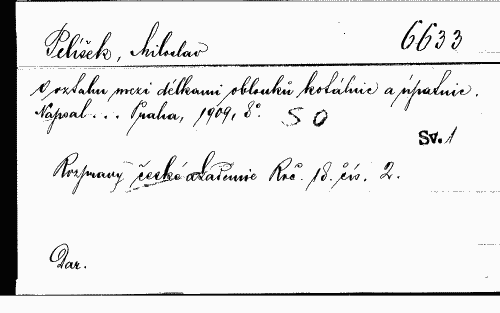 Pelíšek, Miloslav 6633
O vztahu mezi délkami oblouků kotálnic a úpatnic.
Napsal... Praha, 1909, 8°. SO
Sv. 1
Rozpravy české akademie Roč. 18. čís. 2.
Dar.